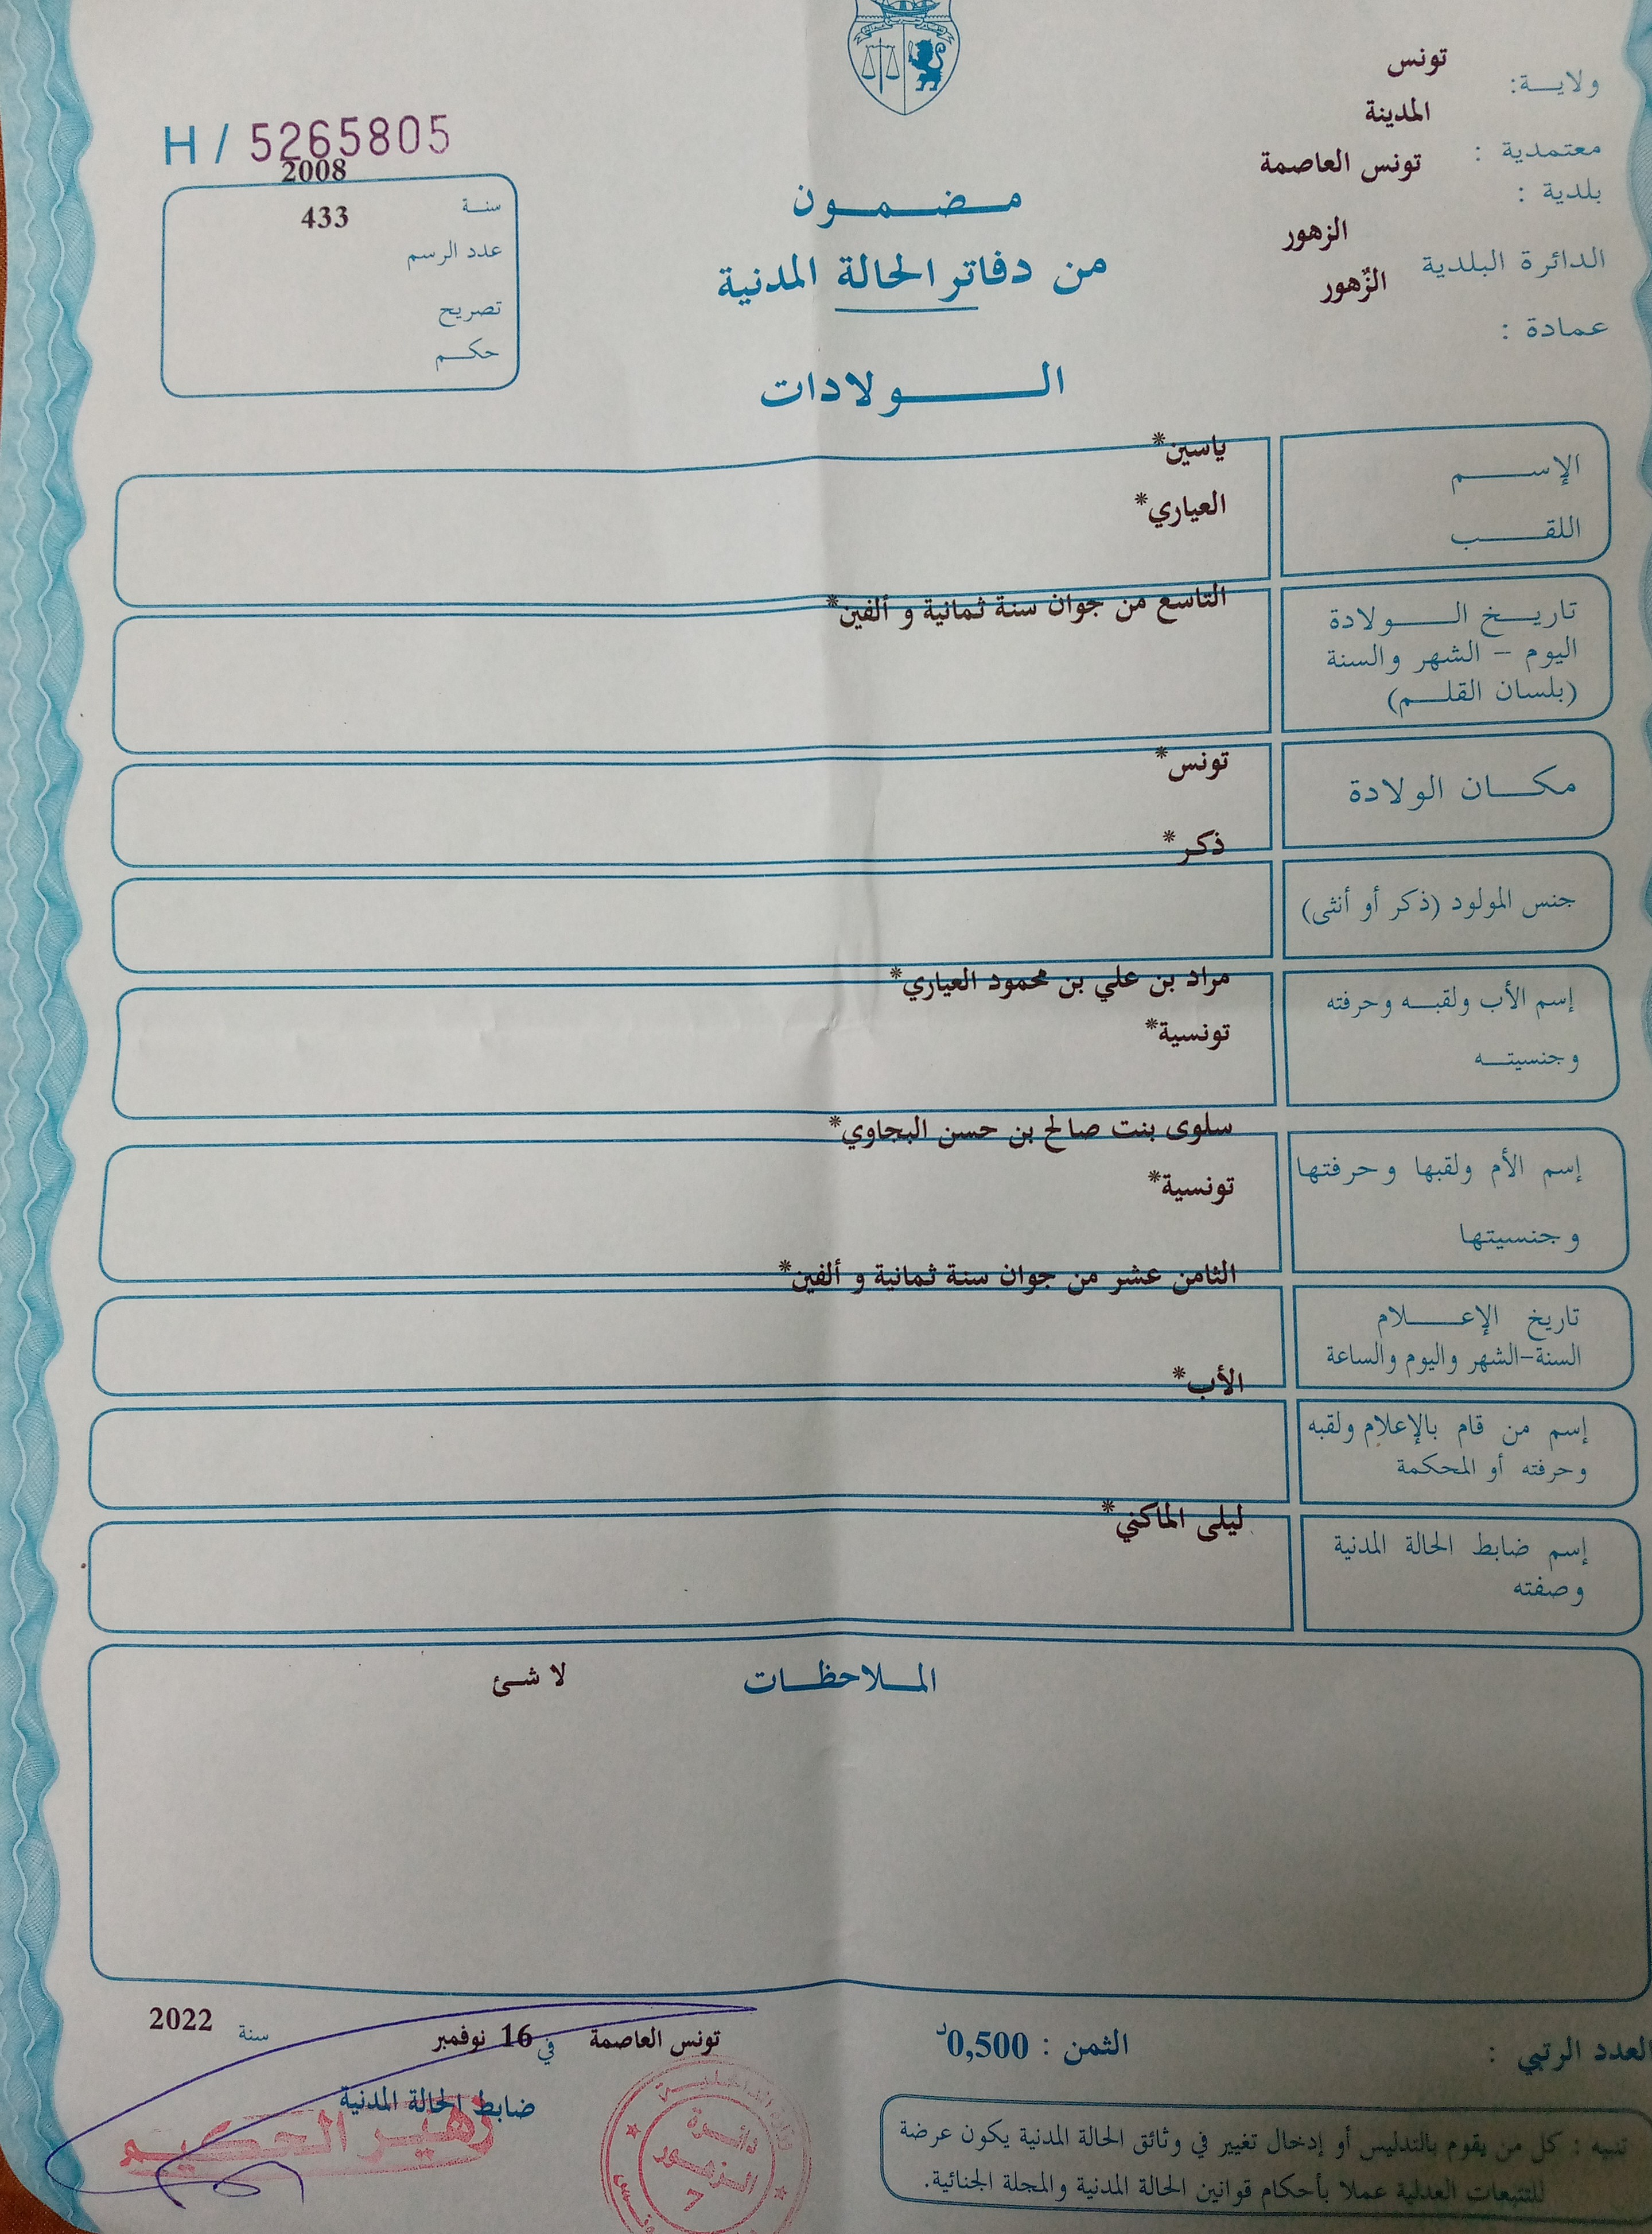 ولاية: تونس
المدينة
معتمدية :
تونس العاصمة
بلدية :
الزهور
الدائرة البلدية
الزّهور
عمادة :
H / 5265805
2008
سنة
433
عدد الرسم
تصريح
حكم
مضمون
من دفاتر الحالة المدنية
الولادات
الإسم
ياسين*
اللقب
العياري*
تاريخ الولادة
اليوم - الشهر والسنة
(بلسان القلم)
التاسع من جوان سنة ثمانية و ألفين*
مكان الولادة
تونس*
جنس المولود (ذكر أو أنثى)
ذكر*
إسم الأب ولقبه وحرفته
وجنسيته
مراد بن علي بن محمود العياري*
تونسية*
إسم الأم ولقبها وحرفتها
وجنسيتها
سلوى بنت صالح بن حسن البجاوي*
تونسية*
تاريخ الإعلام
السنة-الشهر واليوم والساعة
الثامن عشر من جوان سنة ثمانية و ألفين*
إسم من قام بالإعلام ولقبه
وحرفته أو المحكمة
الأب*
إسم ضابط الحالة المدنية
وصفته
ليلى الماكني*
الملاحظات
لا شئ
العدد الرتبي :
الثمن : 0,500د
تونس العاصمة في 16 نوفمبر سنة 2022
ضابط الحالة المدنية
زهير الحكيم
دائرة
الزهور
7
تنبيه : كل من يقوم بالتدليس أو إدخال تغيير في وثائق الحالة المدنية يكون عرضة
للتتبعات العدلية عملا بأحكام قوانين الحالة المدنية والمجلة الجنائية.